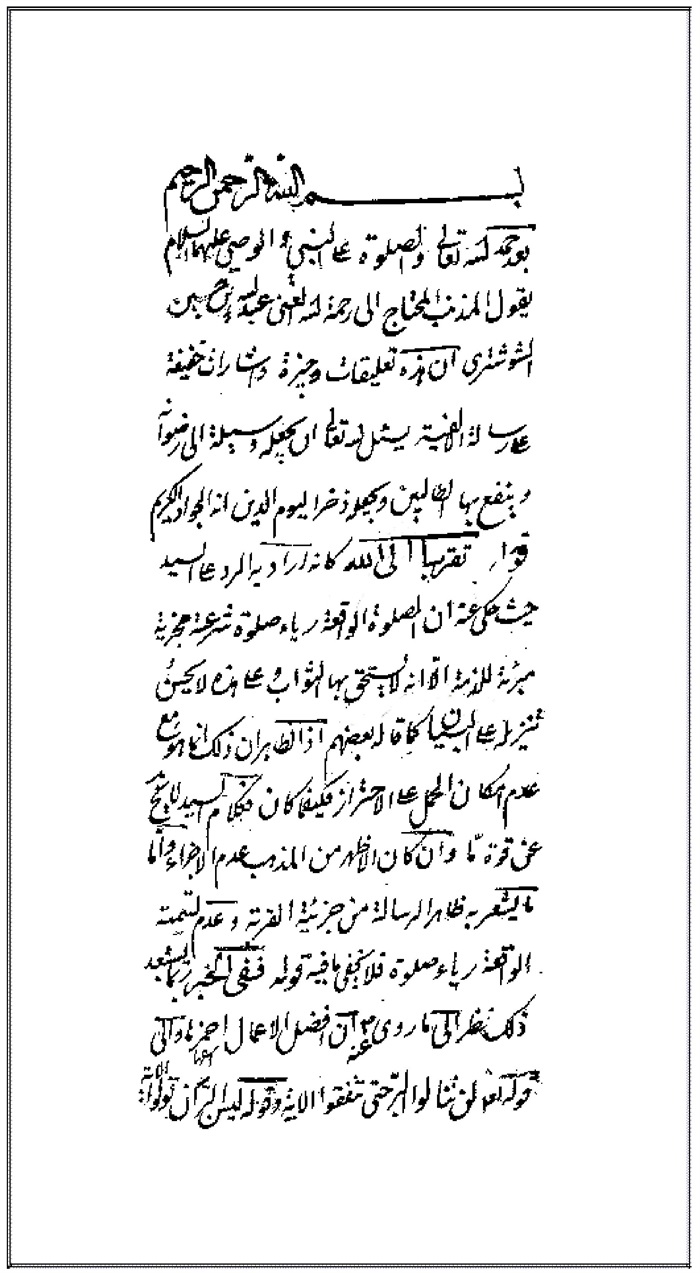 بسم الله الرحمن الرحيم
بعد حمد لله تعالى والصلوة على النبي والوصي عليهما السلام
يقول المذنب المحتاج الى رحمة الله الغني عبد الله بن حسين
الشوشتري ان هذه تعليقات وجيزة واشارات خفيفة
على رسالة الالفية يسئل الله تعالى ان يجعله وسيلة الى رضوانه
وينفع بها الطالبين ويجعله ذخرا ليوم الدين انه الجواد الكريم
قوله تقربا الى الله كانه اراد به الرد على السيد
حيث حكى عنه ان الصلوة الواقعة رياء صلوة شرعية مجزية
مبرئة للذمة الا انه لا يستحق بها الثواب وعلى هذه لا يحسن
تنزيله على البيان كما قاله بعضهم اذ الظاهر ان ذلك انما هو مع
عدم امكان الحمل على الاحتراز فكيفما كان فكلام السيد لا يخ
عن قوة ما وان كان الاظهر من المذهب عدم الاجزاء واما
ما يشعر به ظاهر الرسالة من جزئية القربة وعدم تسمية
الواقعة رياء صلوة فلا يخفى ما فيه قوله ففي الخبر ربما يستبعد
ذلك نظرا الى ما روي عنه ان افضل الاعمال احمزها والى
قوله تعالى لن تنالوا البر حتى تنفقوا الاية وقوله ليس البر ان تولوا الاية